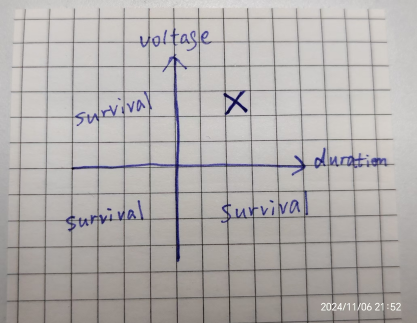 voltage
survival
X
duration
survival
survival
2024/11/06 21:52